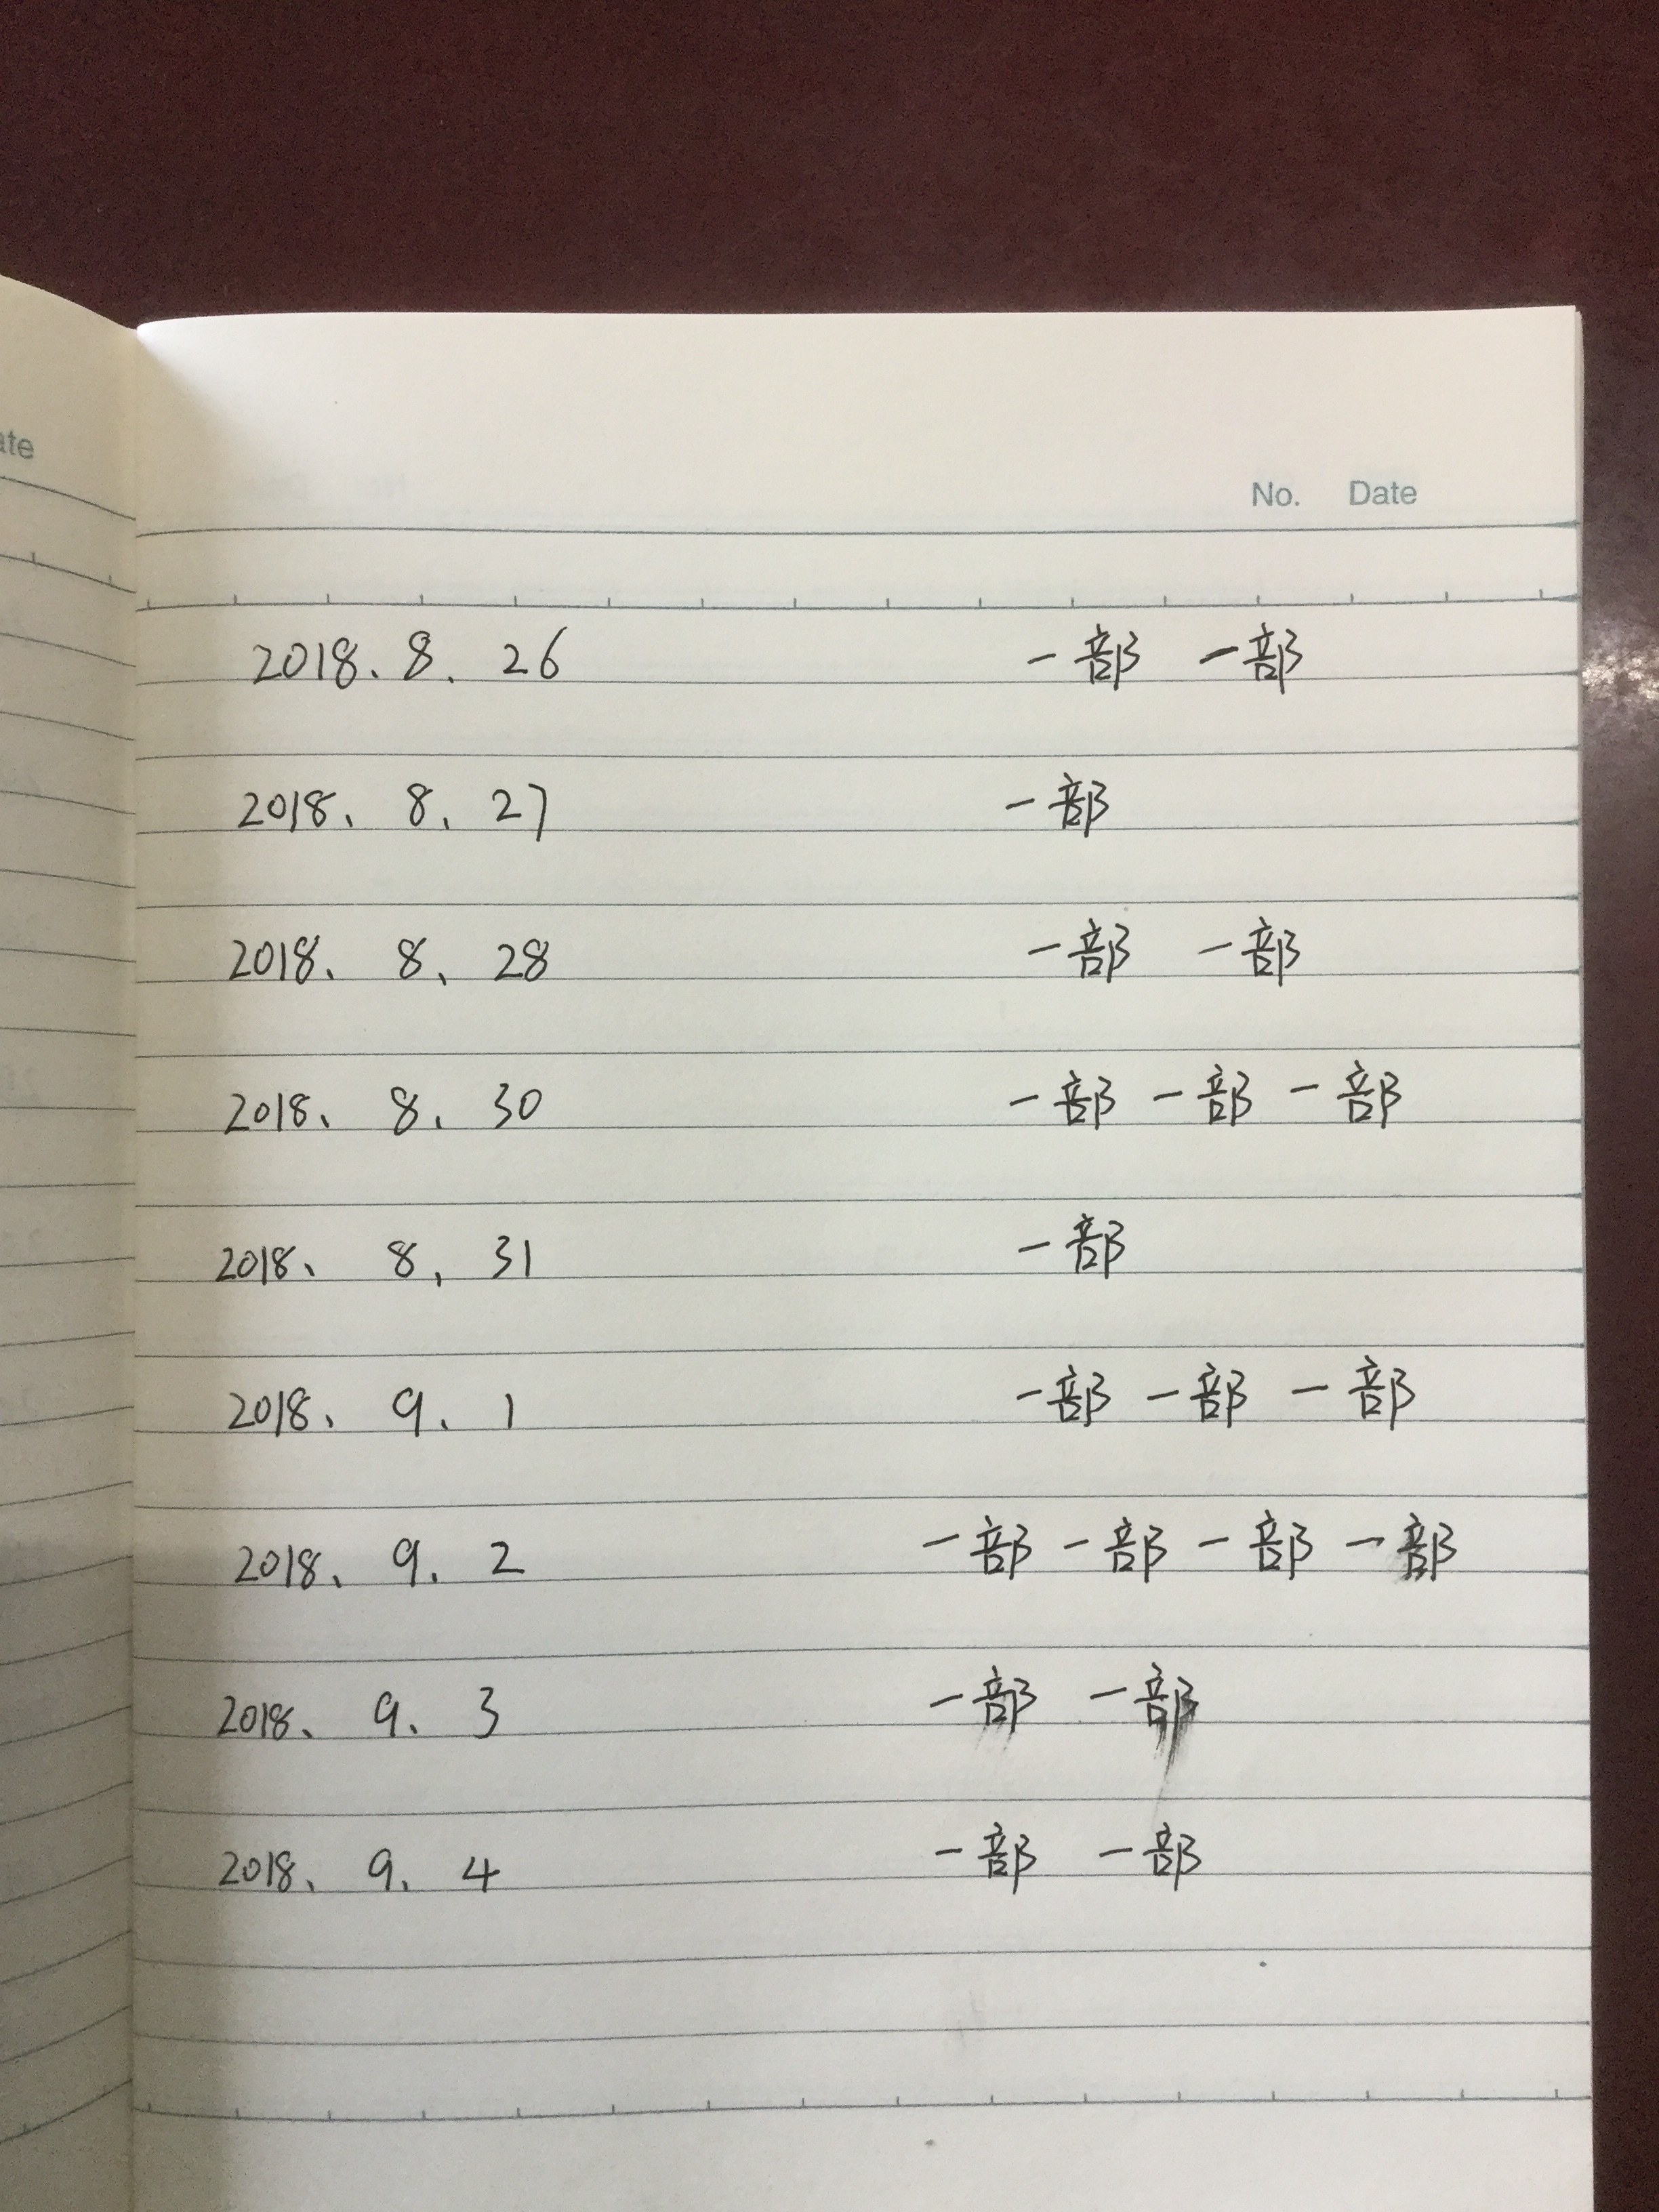 ate
No. Date
2018、8、26 一部 一部
2018、8、27 一部
2018、8、28 一部 一部
2018、8、30 一部 一部 一部
2018、8、31 一部
2018、9、1 一部 一部 一部
2018、9、2 一部 一部 一部 一部
2018、9、3 一部 一部
2018、9、4 一部 一部